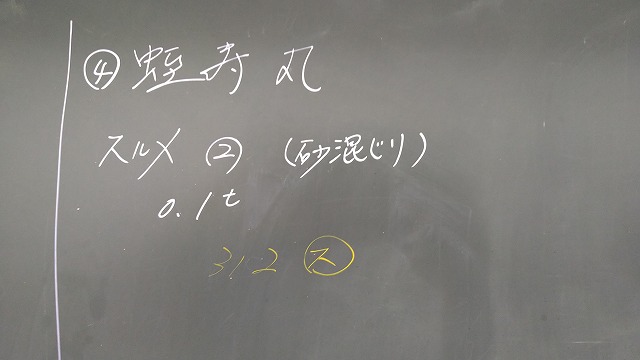 ④ 蛭寿丸
スルメ ② (砂混じり)
0.1t
312 ㋜